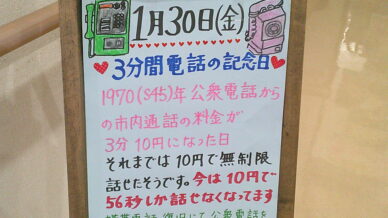 1月30日(金)
3分間電話の記念日
1970(S45)年公衆電話から
の市内通話の料金が
3分10円になった日
それまでは10円で無制限
話せたそうです。今は10円で
56秒しか話せなくなってます
携帯電話の復旧にて公衆電話を